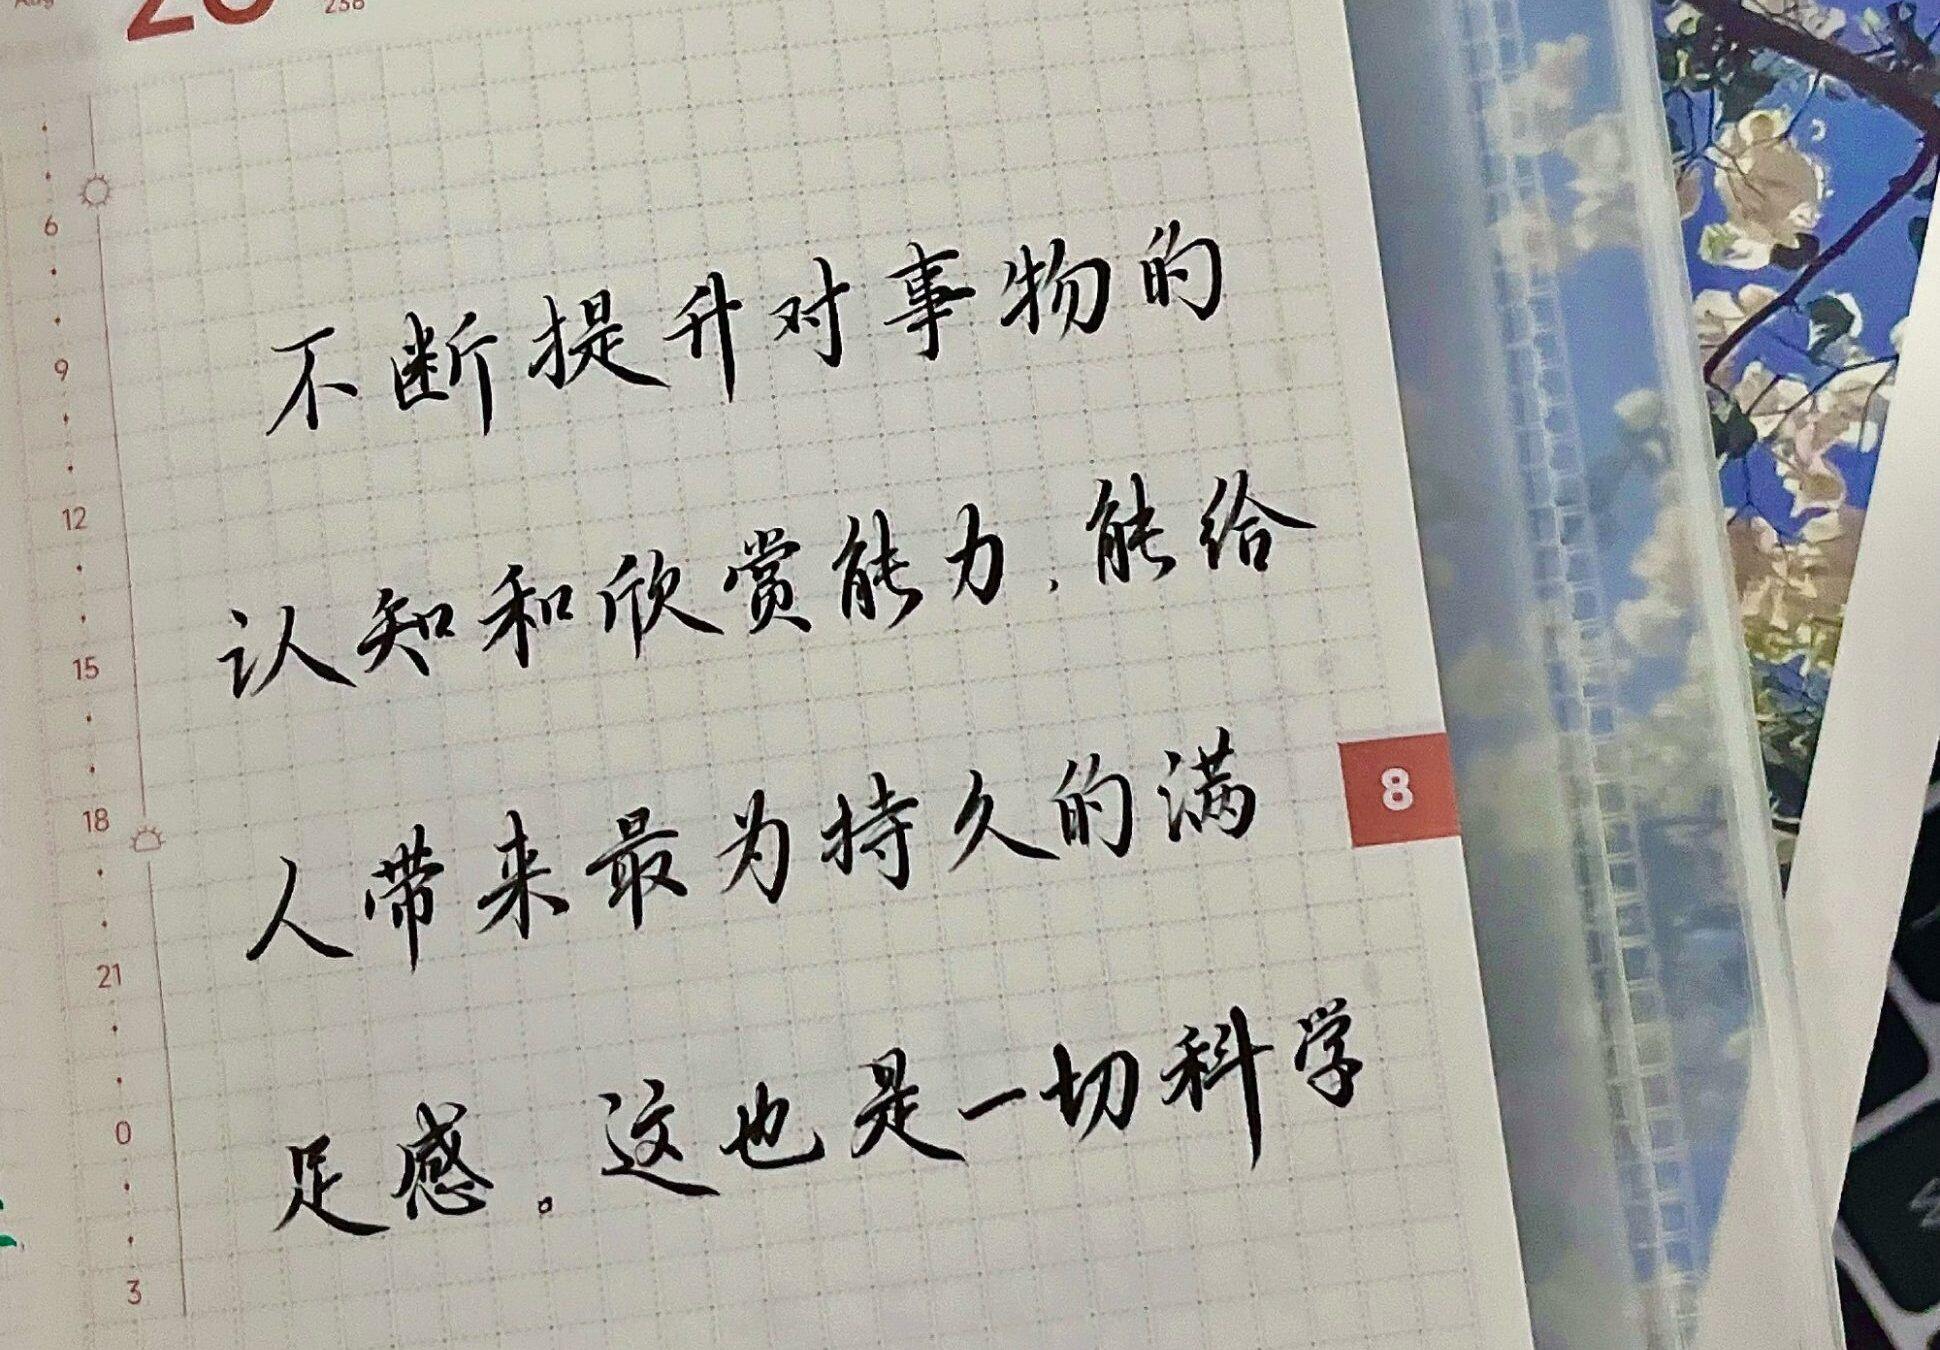 Aug
238
不断提升对事物的
认知和欣赏能力，能给
人带来最为持久的满
足感。这也是一切科学
6
9
12
15
18
21
0
3
8